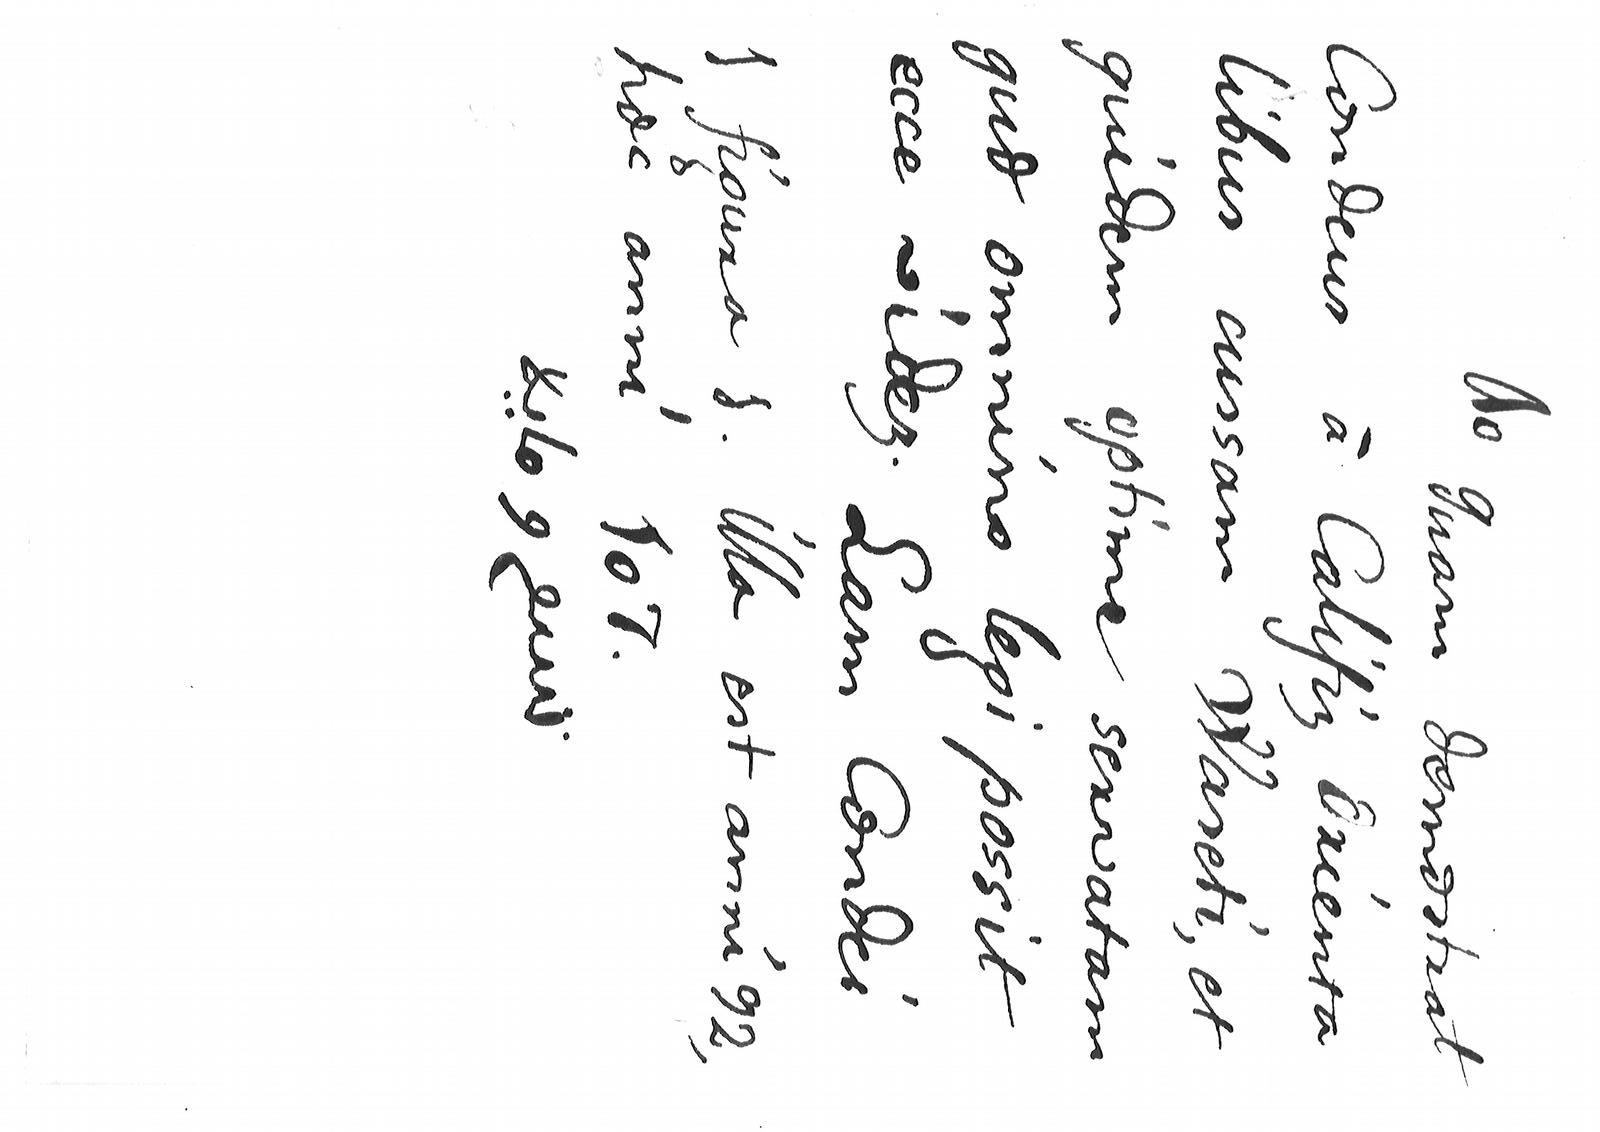 quam
Condeus à Califiz Orienta
libus cussam Waseti, et
quidem optime servatam
quod omnino legi possit
ecce videz. Eam Condei
figura Illa est anni 92,
hæc anni 107.